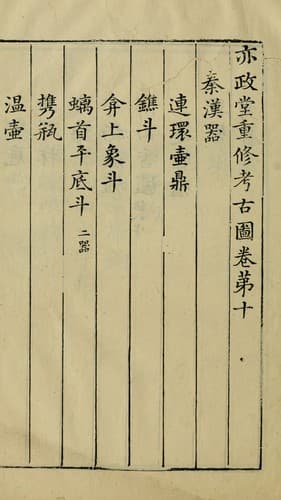 亦政堂重修考古圖卷第十
秦漢器
連環壺鼎
鐎斗
弇上象斗
螭首平底斗 二器
携瓶
温壺